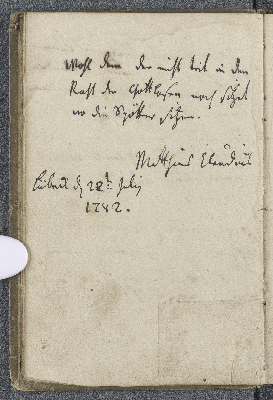 Wohl dem der nicht trit in den
Rath der Gottlosen noch sitzet
wo die Spötter sitzen.
Matthias Claudius
Lübeck d 28th July
1782.